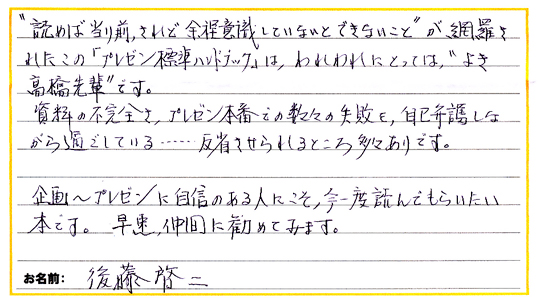 “読めば当り前、されど余程意識していないとできないこと”が網羅さ
れたこの「プレゼン標準ハンドブック」は、われわれにとっては、“よき
高橋先輩”です。
資料の不完全さ、プレゼン本番での数々の失敗を、自己弁護しな
がら過ごしている……反省させられるところ多々ありです。
企画〜プレゼンに自信のある人にこそ、今一度読んでもらいたい
本です。 早速、仲間に勧めてみます。
お名前: 後藤啓二